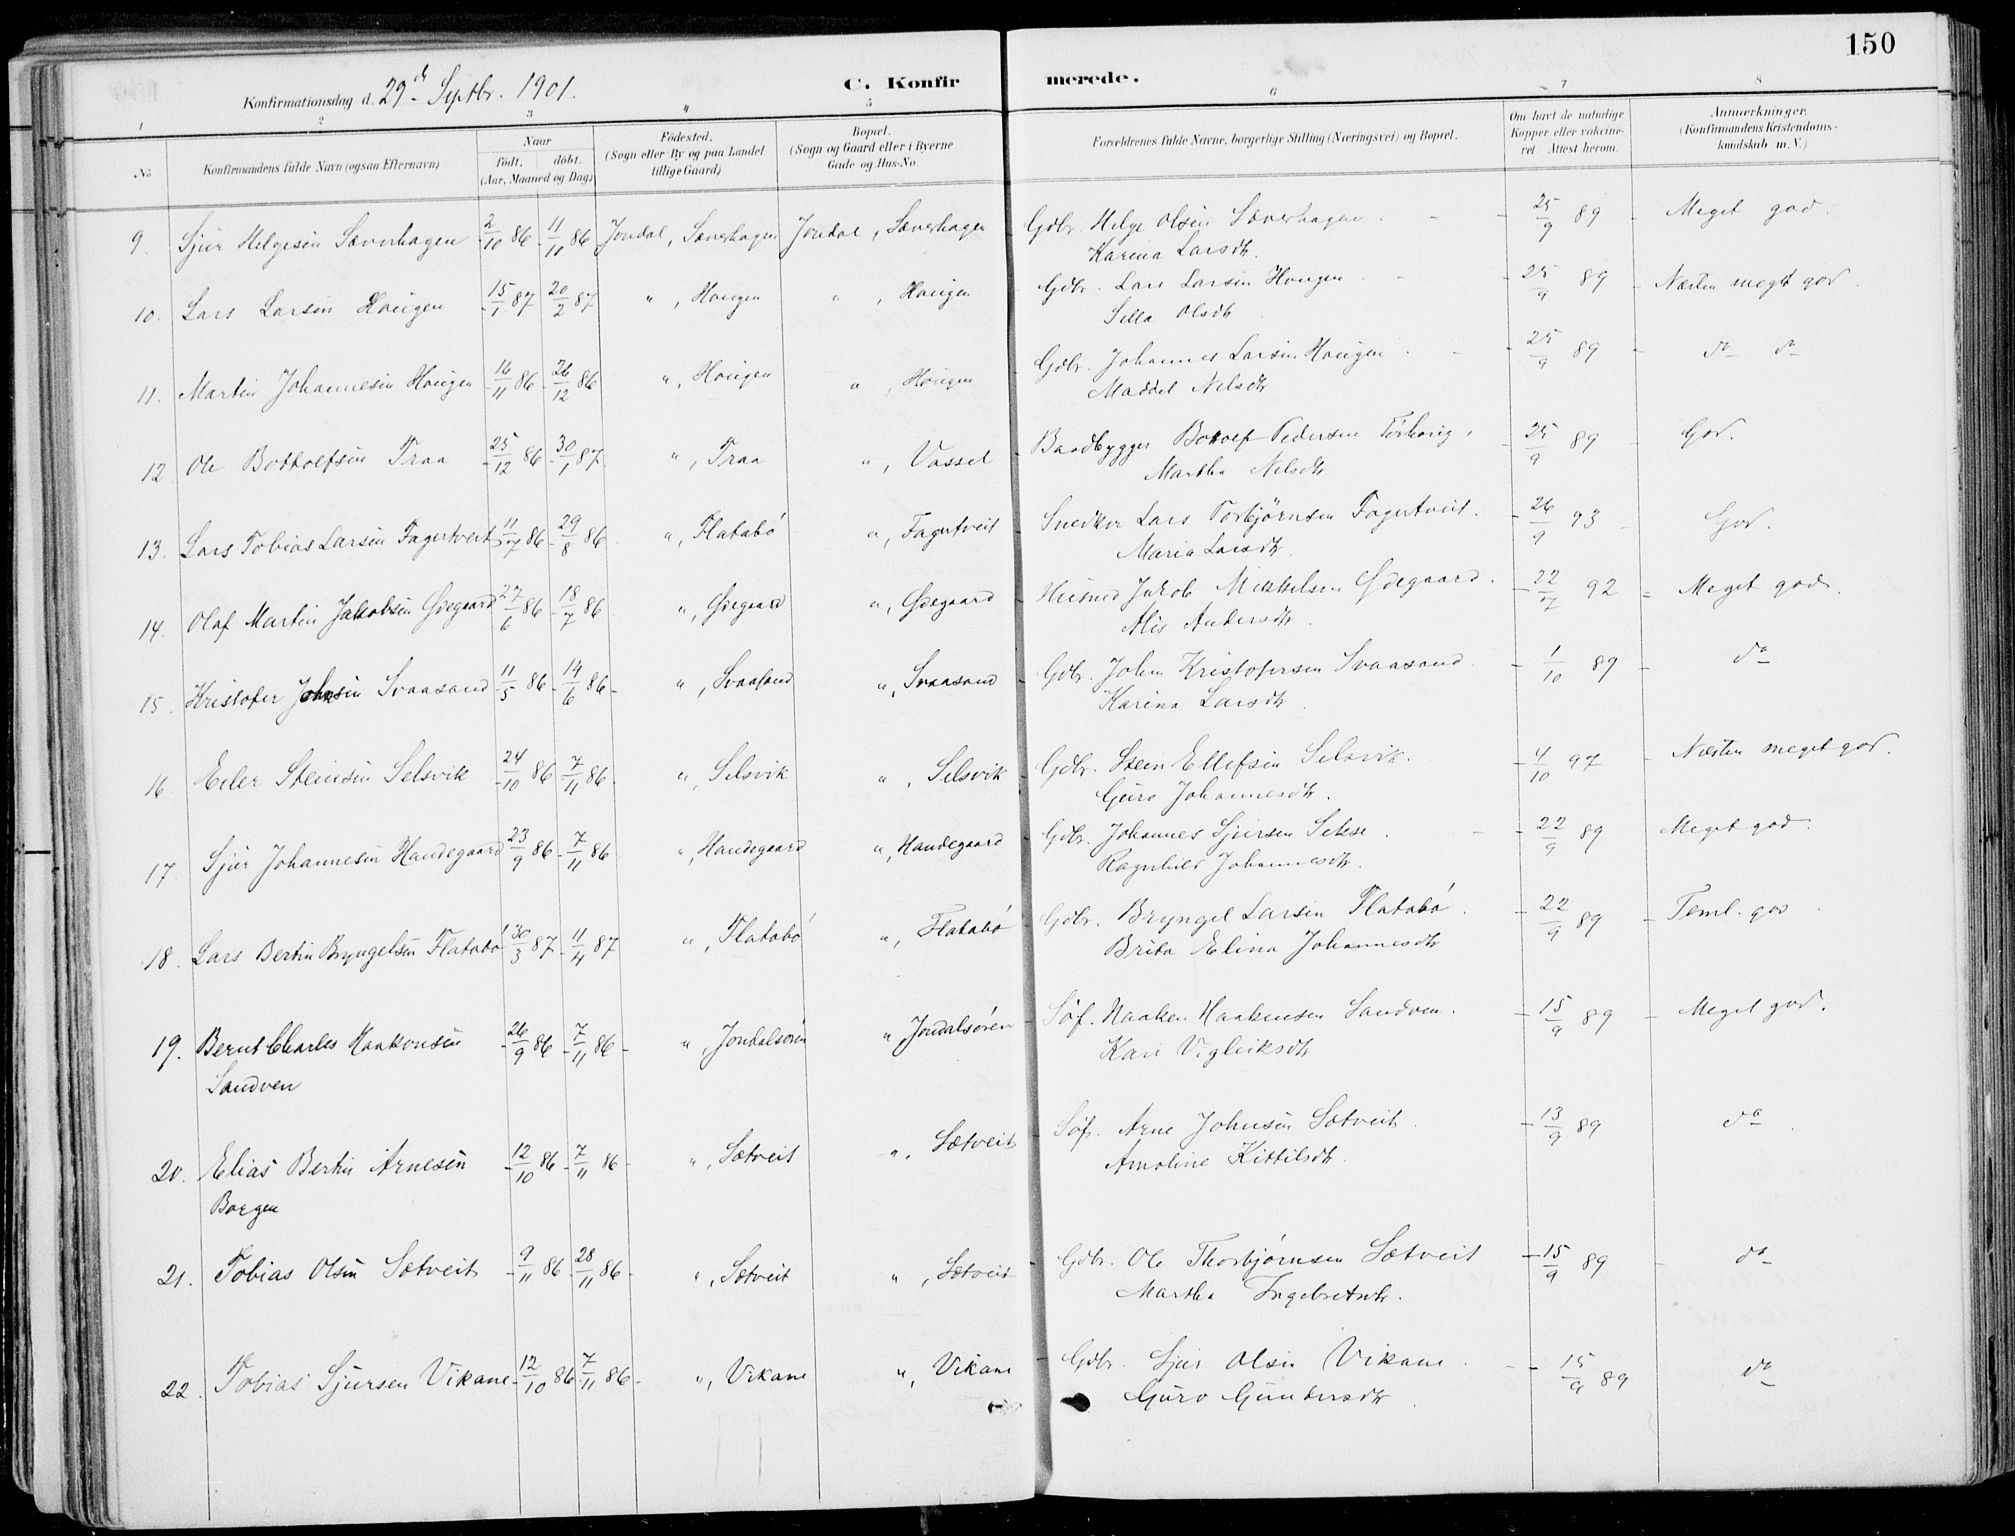 150
Konfirmationsdag d. 29de Septbr. 1901. C. Konfirmerede.
1 2 3 4 5 6 7 8
No. Konfirmandens fulde Navn (ogsaa Efternavn) Naar født, døbt. (Aar, Maaned og Dag) Fødested. (Sogn eller By og paa Landet tillige Gaard) Bopæl. (Sogn og Gaard eller i Byerne Gade og Hus-No. Forældrenes fulde Navne, borgerlige Stilling (Næringsvei) og Bopæl. Om havt de naturlige Kopper eller vakcineret. Attest herom. Anmærkninger. (Konfirmandens Kristendomskundskab m. V.)
9. Sjur Helgesen Sæverhagen 2/10 86 11/11 86 Jondal, Sæverhagen Jondal, Sæverhagen Gdbr. Helge Olsen Sæverhagen. 25/9 89 Meget god.
Karina Larsdtr.
10. Lars Larsen Hougen 15/1 87 20/2 87 ", Hougen ", Hougen Gdbr. Lars Larsen Hougen 25/9 89 Næsten meget god.
Silla Olsdtr.
11. Martin Johannesen Hougen 16/11 86 26/12 86 ", Hougen ", Hougen Gdbr. Johannes Larsen Hougen 25/9 89 do do
Maddel Nelsdtr
12 Ole Bottolfsen Traa 25/12 86 30/1 87 ", Traa ", Vassel Baadbygger Bottolf Pedersen 25/9 89 God.
Martha Nelsdtr
13. Lars Tobias Larsen Fagertveit 11/7 86 29/8 86 ", Flatabó ", Fagertveit Snedker Lars Torbjørnsen Fagertveit. 26/9 93 God.
Maria Larsdtr.
14. Olaf Martin Jakobsen Ødegaard 27/6 86 18/7 86 ", Ødegaard ", Ødegaard Husmd Jakob Mikkelsen Ødegaard. 22/7 92 Meget god.
Alis Andersdtr.
15. Kristofer Johnsen Svaasand 11/5 86 14/6 86 ", Svaasand ", Svaasand Gdbr. John Kristofersen Svaasand. 1/10 89 do
Karina Larsdtr.
16. Eiler Steinsen Selsvik 24/10 86 7/11 86 ", Selsvik ", Selsvik Gdbr. Steen Ellefsen Selsvik. 4/10 97 Næsten meget god.
Guro Johannesdtr.
17. Sjur Johannesen Handegaard 23/9 86 7/11 86 ", Handegaard ", Handegaard Gdbr. Johannes Sjursen Sekse. 22/9 89 Meget god.
Ragnhild Johannesdtr.
18. Lars Bertin Bryngelsen Flatabo 30/3 87 11/4 87 ", Flatabó ", Flatabó Gdbr. Bryngel Larsen Flatabó. 22/9 89 Teml. god
Brita Elina Johannesdtr
19. Bernt Charles Haakonsen 26/9 86 7/11 86 ", Jondalsøren ", Jondalsøren Søf. Haaken Haakensen Sandven. 15/9 89 Meget god.
Sandven Kari Vigleiksdtr
20. Elias Bertin Arnesen 12/10 86 7/11 86 ", Sætveit ", Sætveit Søf. Arne Johnsen Sætveit. 13/9 89 do
Borgen Amaline Kittilsdtr.
21. Tobias Olsen Sætveit 9/11 86 28/11 86 ", Sætveit ", Sætveit Gdbr. Ole Thorbjørnsen Sætveit 15/9 89 do
Martha Ingebretsdtr.
22. Tobias Sjursen Vikane 12/10 86 7/11 86 ", Vikane ", Vikane Gdbr. Sjur Olsen Vikane. 15/9 89 do
Guro Gundersdtr.